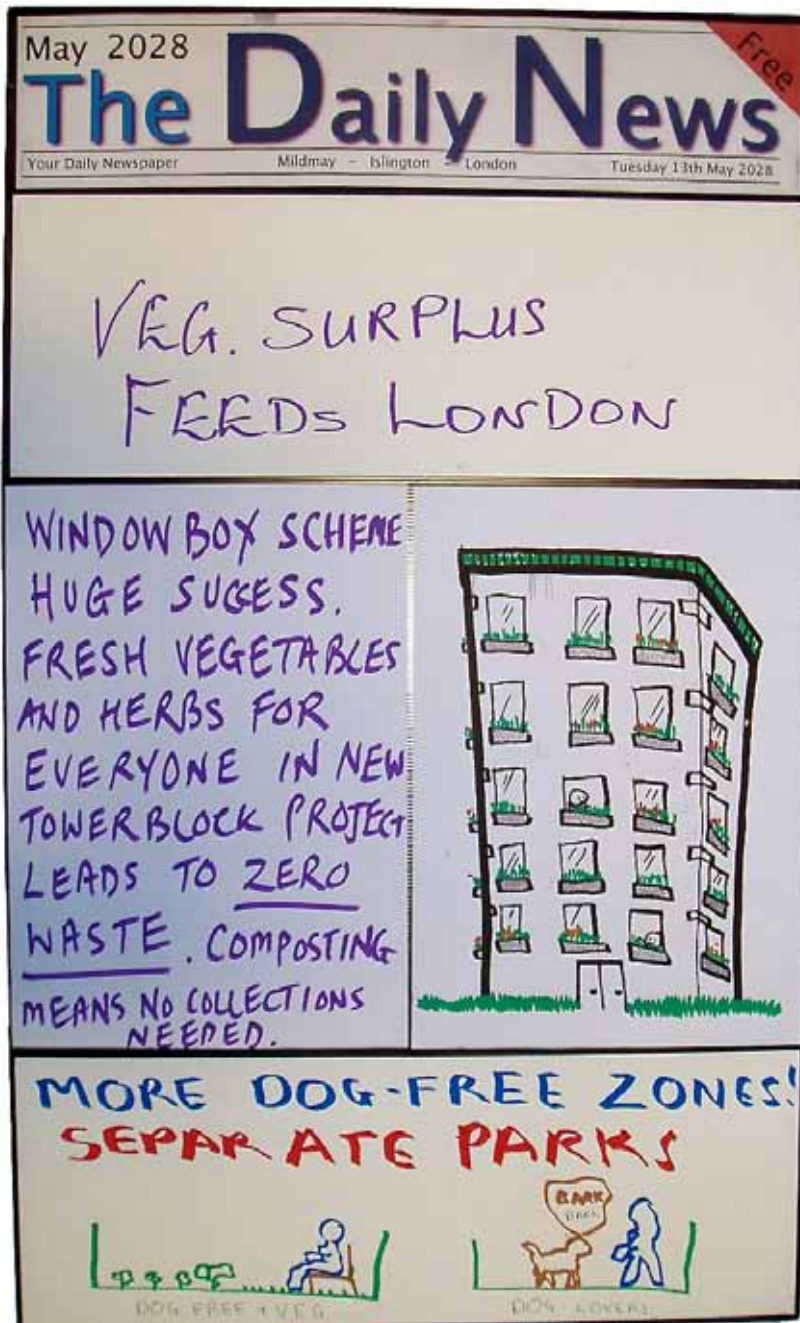 May 2028
Free
The Daily News
Your Daily Newspaper Mildmay - Islington - London Tuesday 13th May 2028
VEG. SURPLUS
FEEDS LONDON
WINDOW BOX SCHEME
HUGE SUCESS.
FRESH VEGETABLES
AND HERBS FOR
EVERYONE IN NEW
TOWERBLOCK PROJECT
LEADS TO ZERO
WASTE. COMPOSTING
MEANS NO COLLECTIONS
NEEDED.
MORE DOG-FREE ZONES!
SEPARATE PARKS
BARK
BARK
DOG FREE + VEG
DOG LOVERS